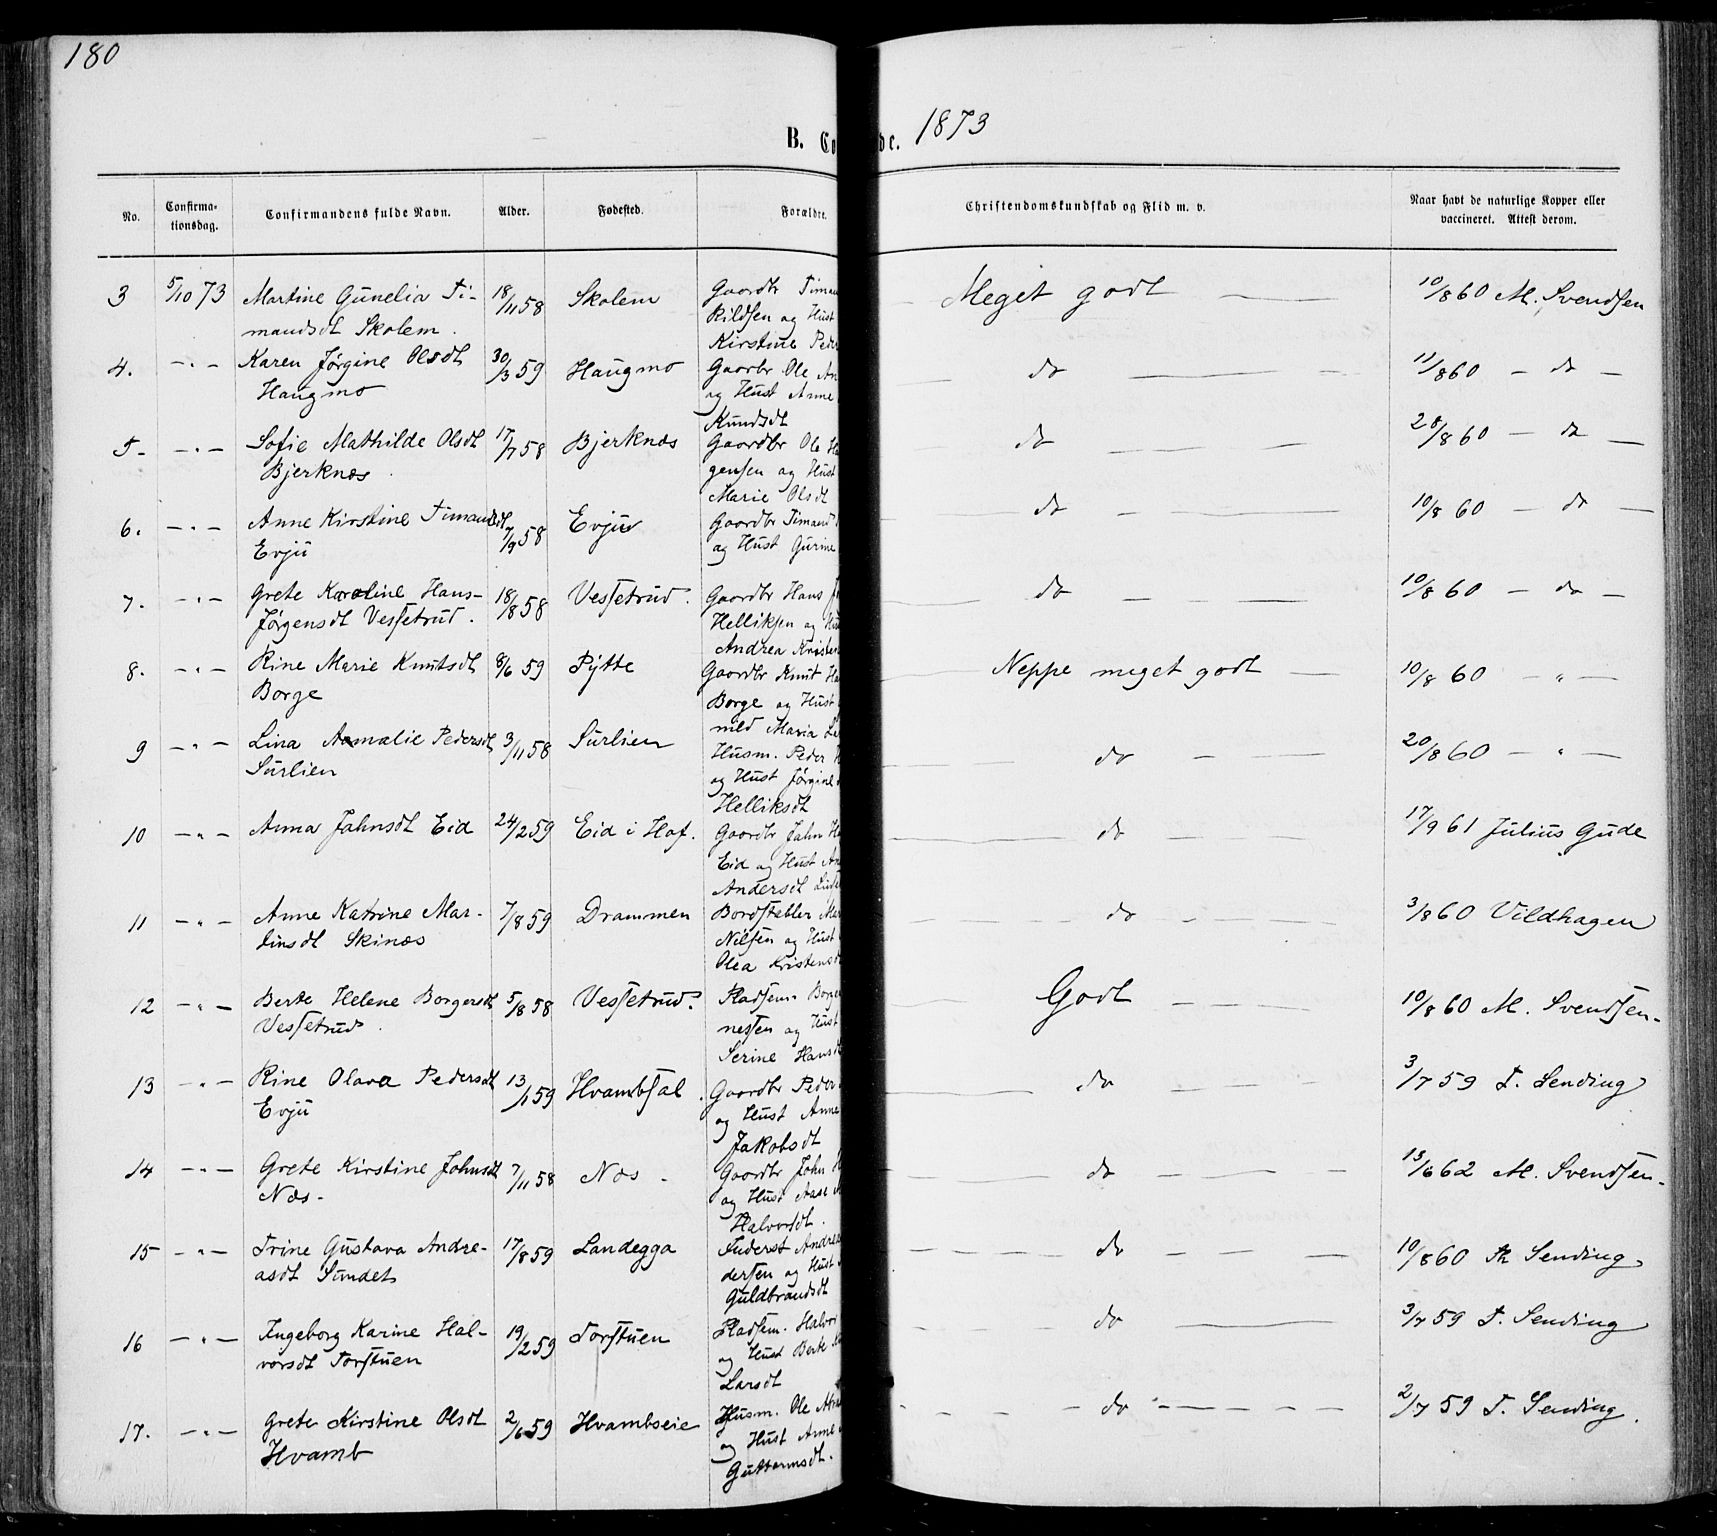 180
B. Co de. 1873
No.
Confirma-
tionsdag.
Confirmandens fulde Navn.
Alder.
Fødested.
Forældre.
Christendomskundskab og Flid m. v.
Naar havt de naturlige Kopper eller
vaccineret. Attest derom.
3 5/10 73 Martine Gunelia Ti- 18/11 58 Skolem Gaardbr Timan Meget godt 10/8 60 M. Svendsen
mandsdt Skolem. Kildsen og Hust
Kirstine Peder
4. - " - Karen Jørgine Olsdt 30/3 59 Haugmo Gaardbr Ole An do 11/8 60 - do -
Haugmo og Hust Anne
Knudsdt
5 - - " - Sofie Mathilde Olsdt 17/7 58 Bjerknæs Gaardbr Ole Ha do 28/8 60 - do -
Bjerknæs gensen og Hust
Marie Olsdt
6. - " - Anne Kirstine Timandsdt 7/9 58 Evju Gaardbr Timand do 10/8 60 - do -
Evju og Hust Gurine
7. - " - Grete Karoline Hans- 18/8 58 Vessetrud. Gaardbr Hans J do 10/8 60 - do -
Jørgensdt Vessetrud. Helliksen og Hu
Andrea Kristen
8. - " - Rine Marie Knutsdt 8/6 59 Pytte Gaardbr Knut Ha Neppe meget godt 10/8 60 - " -
Borge Borge og Hust
med Maria L
9 - " - Lina Amalie Pedersdt 3/11 58 Surlien Husm. Peder H do 20/8 60 - " -
Surlien og Hust Jørgine
Helliksdt
10 - " - Anna Jahnsdt Eid 24/2 59 Eid i Hof. Gaardbr Jahn Ha do 17/9 61 Julius Gude
Eid og Hust An
Andersdt
11 - " - Anne Katrine Mar- 7/8 59 Drammen Bordstabler Mar do 3/8 60 Vildhagen
tinsdt Skinæs Nilsen og Hust
Olea Kristensd
12 - " - Berte Helene Borgersdt 5/8 58 Vessetrud. Pladsem. Borge Godt 10/8 60 M. Svendsen-
Vessetrud. nessen og Hust
Serine Hansd
13 - " - Rine Olava Pedersdt 13/1 59 Hvambsal. Gaardbr Peder do 3/7 59 T. Sending
Evju og Hust Anne
Jakobsdt
14 - " - Grete Kirstine Johnsdt 7/11 58 Næs - Gaardbr John H do 13/6 62 M. Svendsen-
Næs- og Hust Aase
Halvorsdt.
15 - " - Trine Gustava Andre- 17/8 59 Landegga Inderst Andrea do 10/8 60 Th Sending
asdt Sundet dersen og Hust
Guldbrandsdt
16 - " - Ingeborg Karine Hal- 19/2 59 Torstuen Pladsem. Halvor do 3/7 59 T. Sending
vorsdt Torstuen og Hust Berte
Larsdt
17. - " - Grete Kirstine Olsdt 2/6 59 Hvambseie Husm. Ole do 2/7 59 T. Sending.
Hvamb og Hust Anne
Guttormsdt.